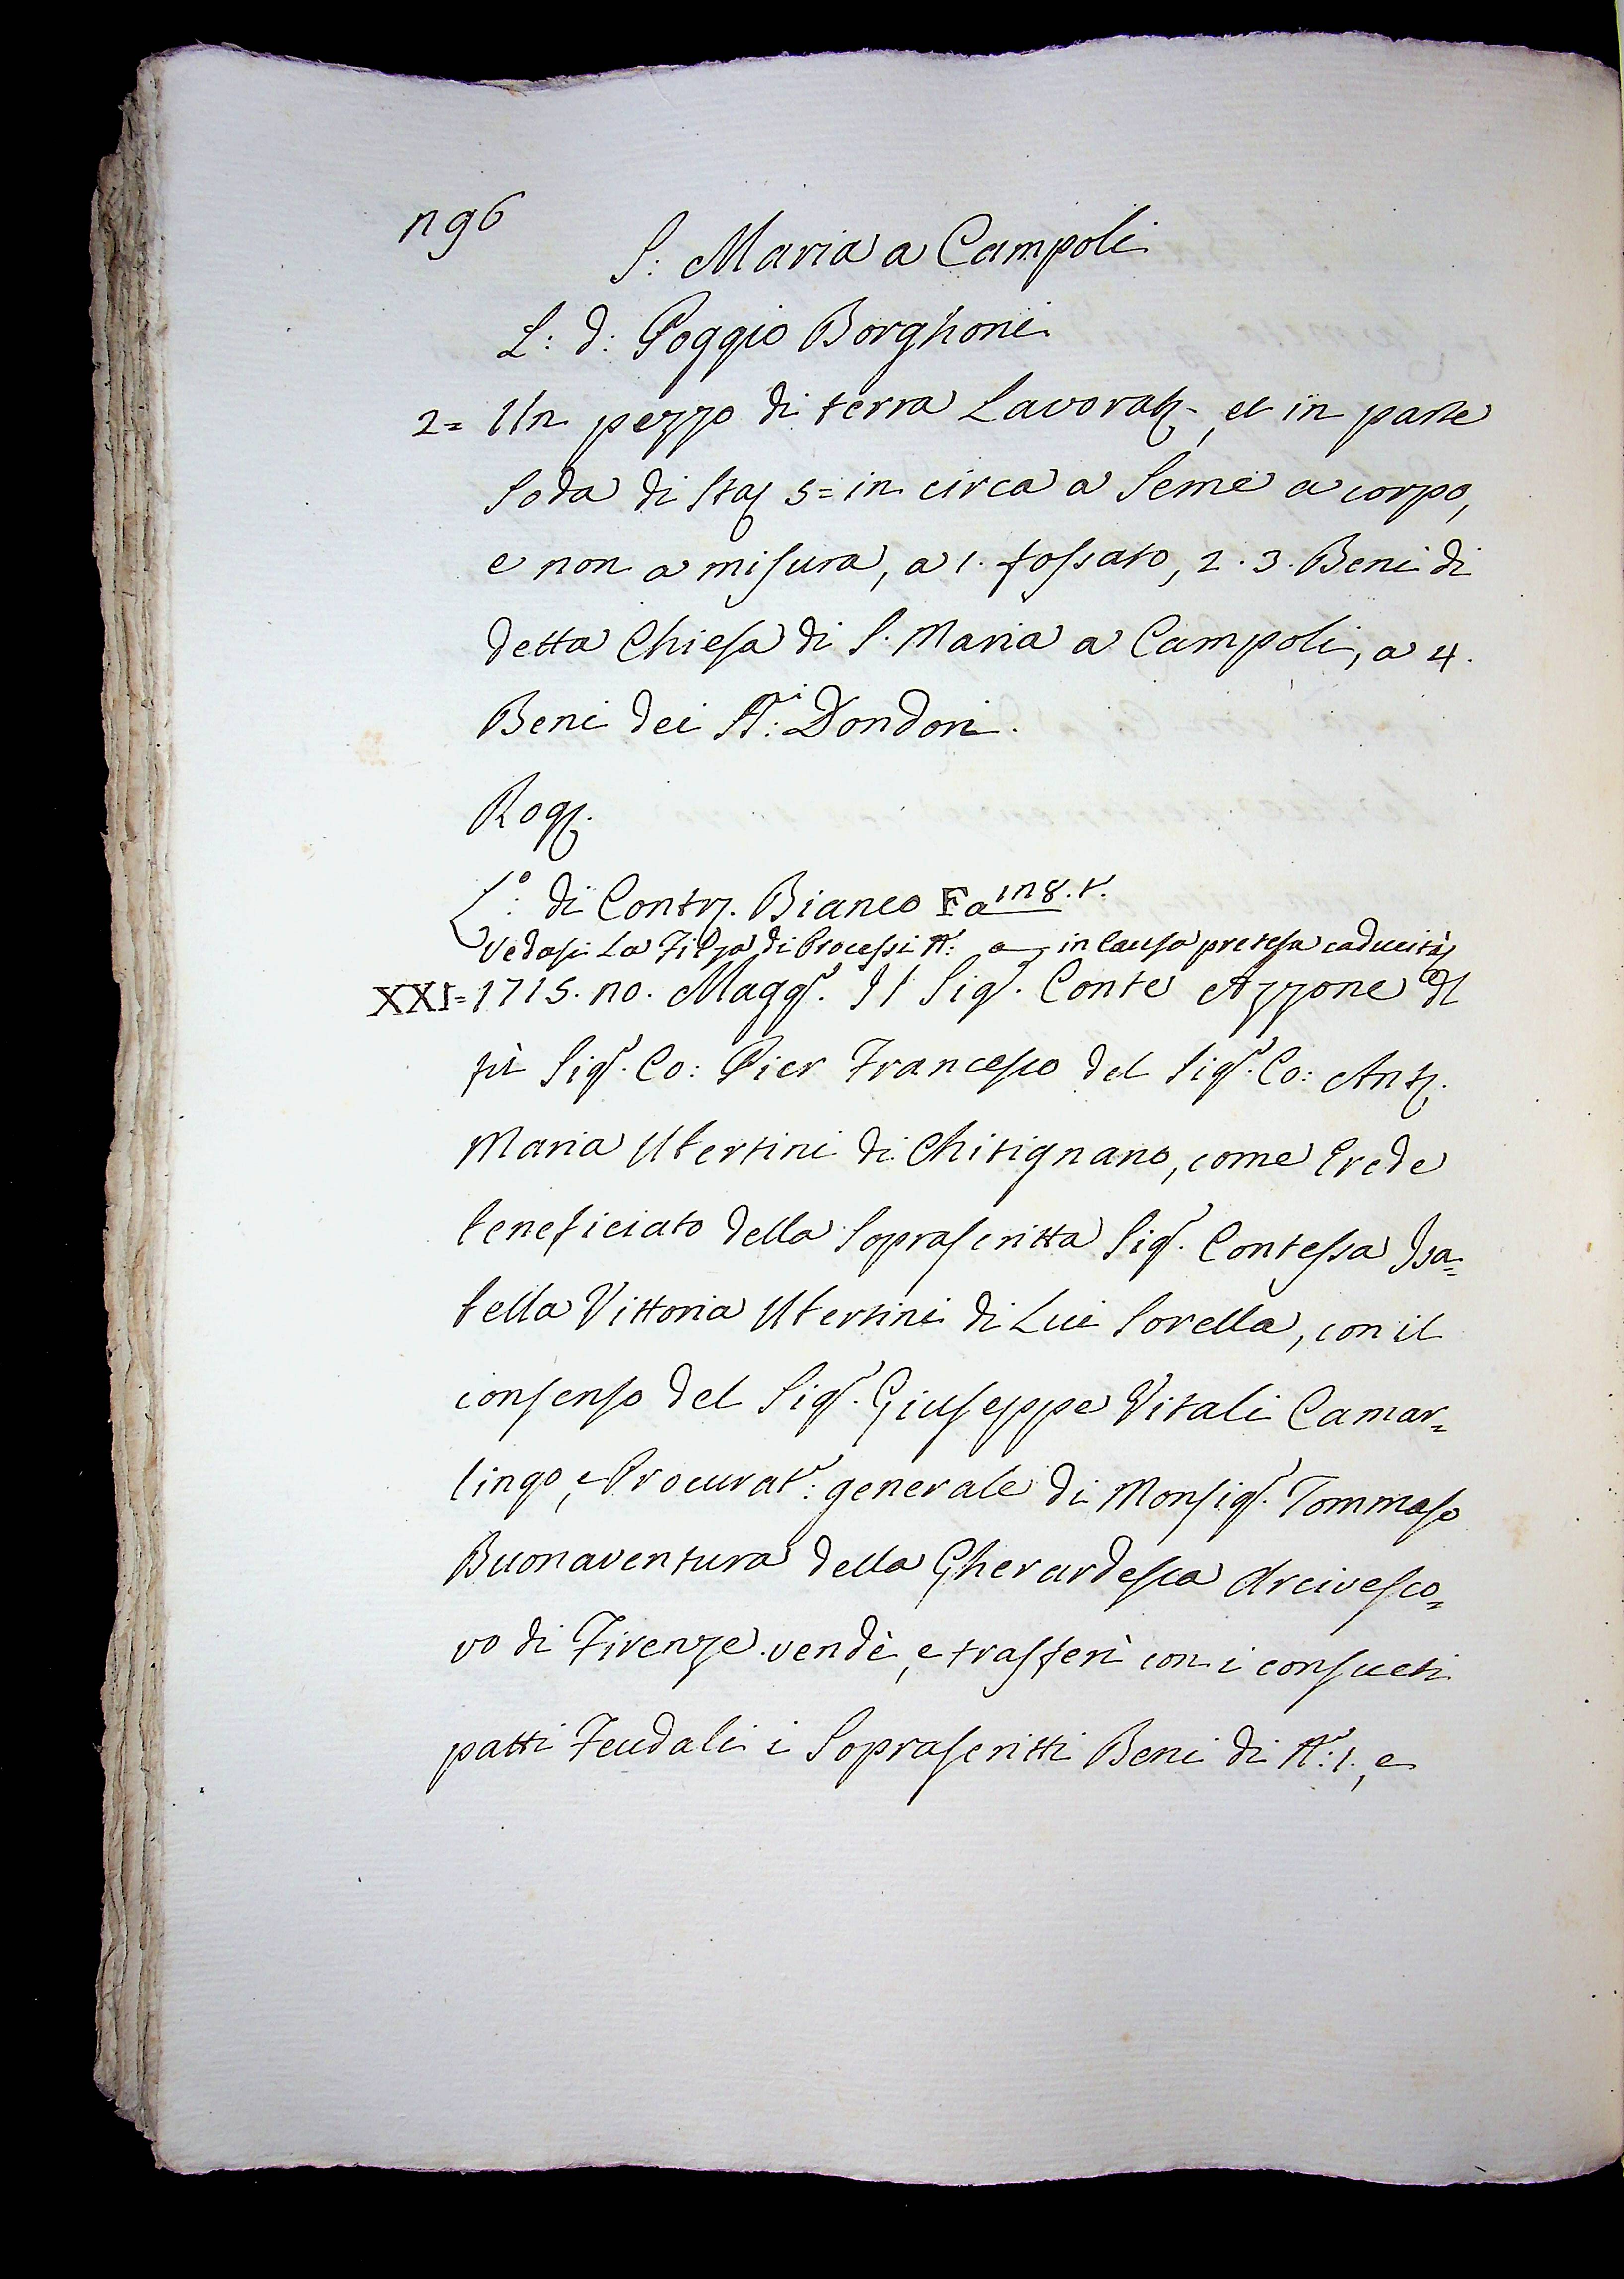 196
S: Maria a Campoli
L: d: Poggio Borghoni
2= Un pezzo di terra Lavorat., et in parte
soda di sta: 5= in circa a seme a corpo,
e non a misura, a 1. fossato, 2. 3. Beni di
detta Chiesa di S. Maria a Campoli, a 4.
Beni dei SS.ri Dondori.
Rog.
L.o: di Contr. Bianco F a 178. t.
Vedasi La Filza di Processi N: a in Causa pretesa caducità
XXI= 1715. 10. Magg.o Il Sig.r Conte Azzone del
fù Sig.r Co: Pier Francesco del Sig.r Co: Ant.
Maria Ubertini di Chitignano, come Erede
beneficiato della Soprascritta Sig.ra Contessa Isa=
bella Vittoria Ubertini di Lui Sorella, con il
consenso del Sig.r Giuseppe Vitali Camar=
lingo, e Procurat.e: generale di Monsig.r Tommaso
Buonaventura della Gherardesca Arcivesco=
vo di Firenze vendè, e trasferì con i consueti
patti Feudali i Soprascritti Beni di N: 1., e